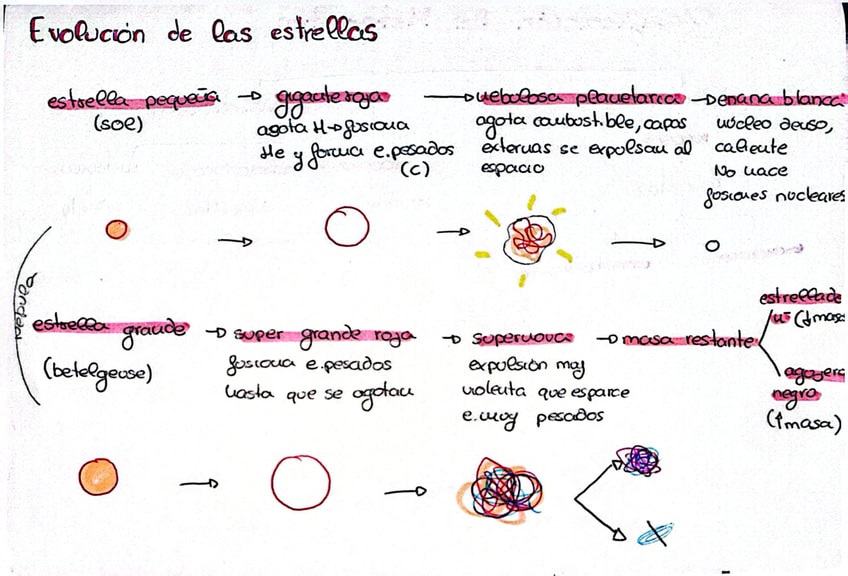 Evolución de las estrellas
estrella pequeña → gigante roja → nebulosa planetaria → enana blanca
(sol)
agota H→fosiona
He y forma e.pesados
(C)
agota combustible, capas
externas se expulsan al
espacio
núcleo denso,
caliente
No hace
fosiones nucleares
estrella grande → super grande roja → supernova → masa restante
(betelgeuse)
fosiona e.pesados
hasta que se agotan
expulsión muy
violenta que esparce
e.muy pesados
estrella de
negro
(↑masa)